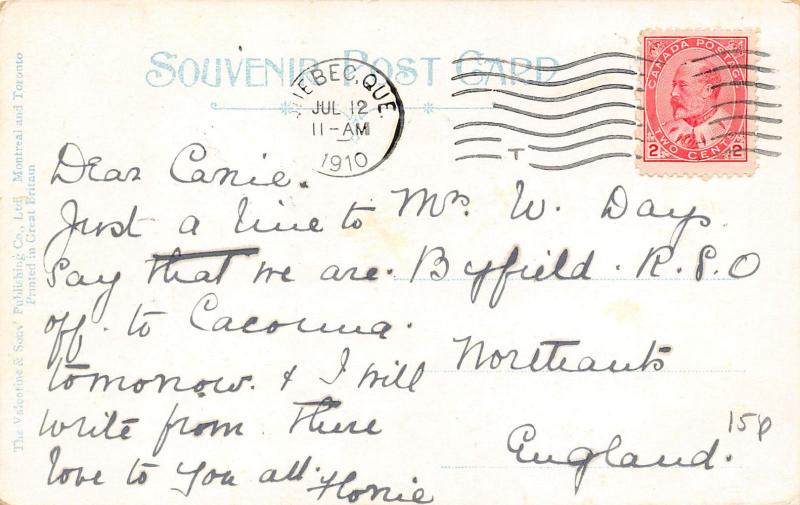 SOUVENIR POST CARD
QUEBEC, QUE.
JUL 12
11-AM
1910
T
CANADA POSTAGE
2 TWO CENTS 2
The Valentine & Sons' Publishing Co., Ltd. Montreal and Toronto
Printed in Great Britain
Dear Canie.
Just a line to
say that we are
off. to Cacouna.
tomorrow. & I will
write from there
love to you all.
Florie
Mrs W. Days
Byfield. R.S.O
Northants
England.
15p